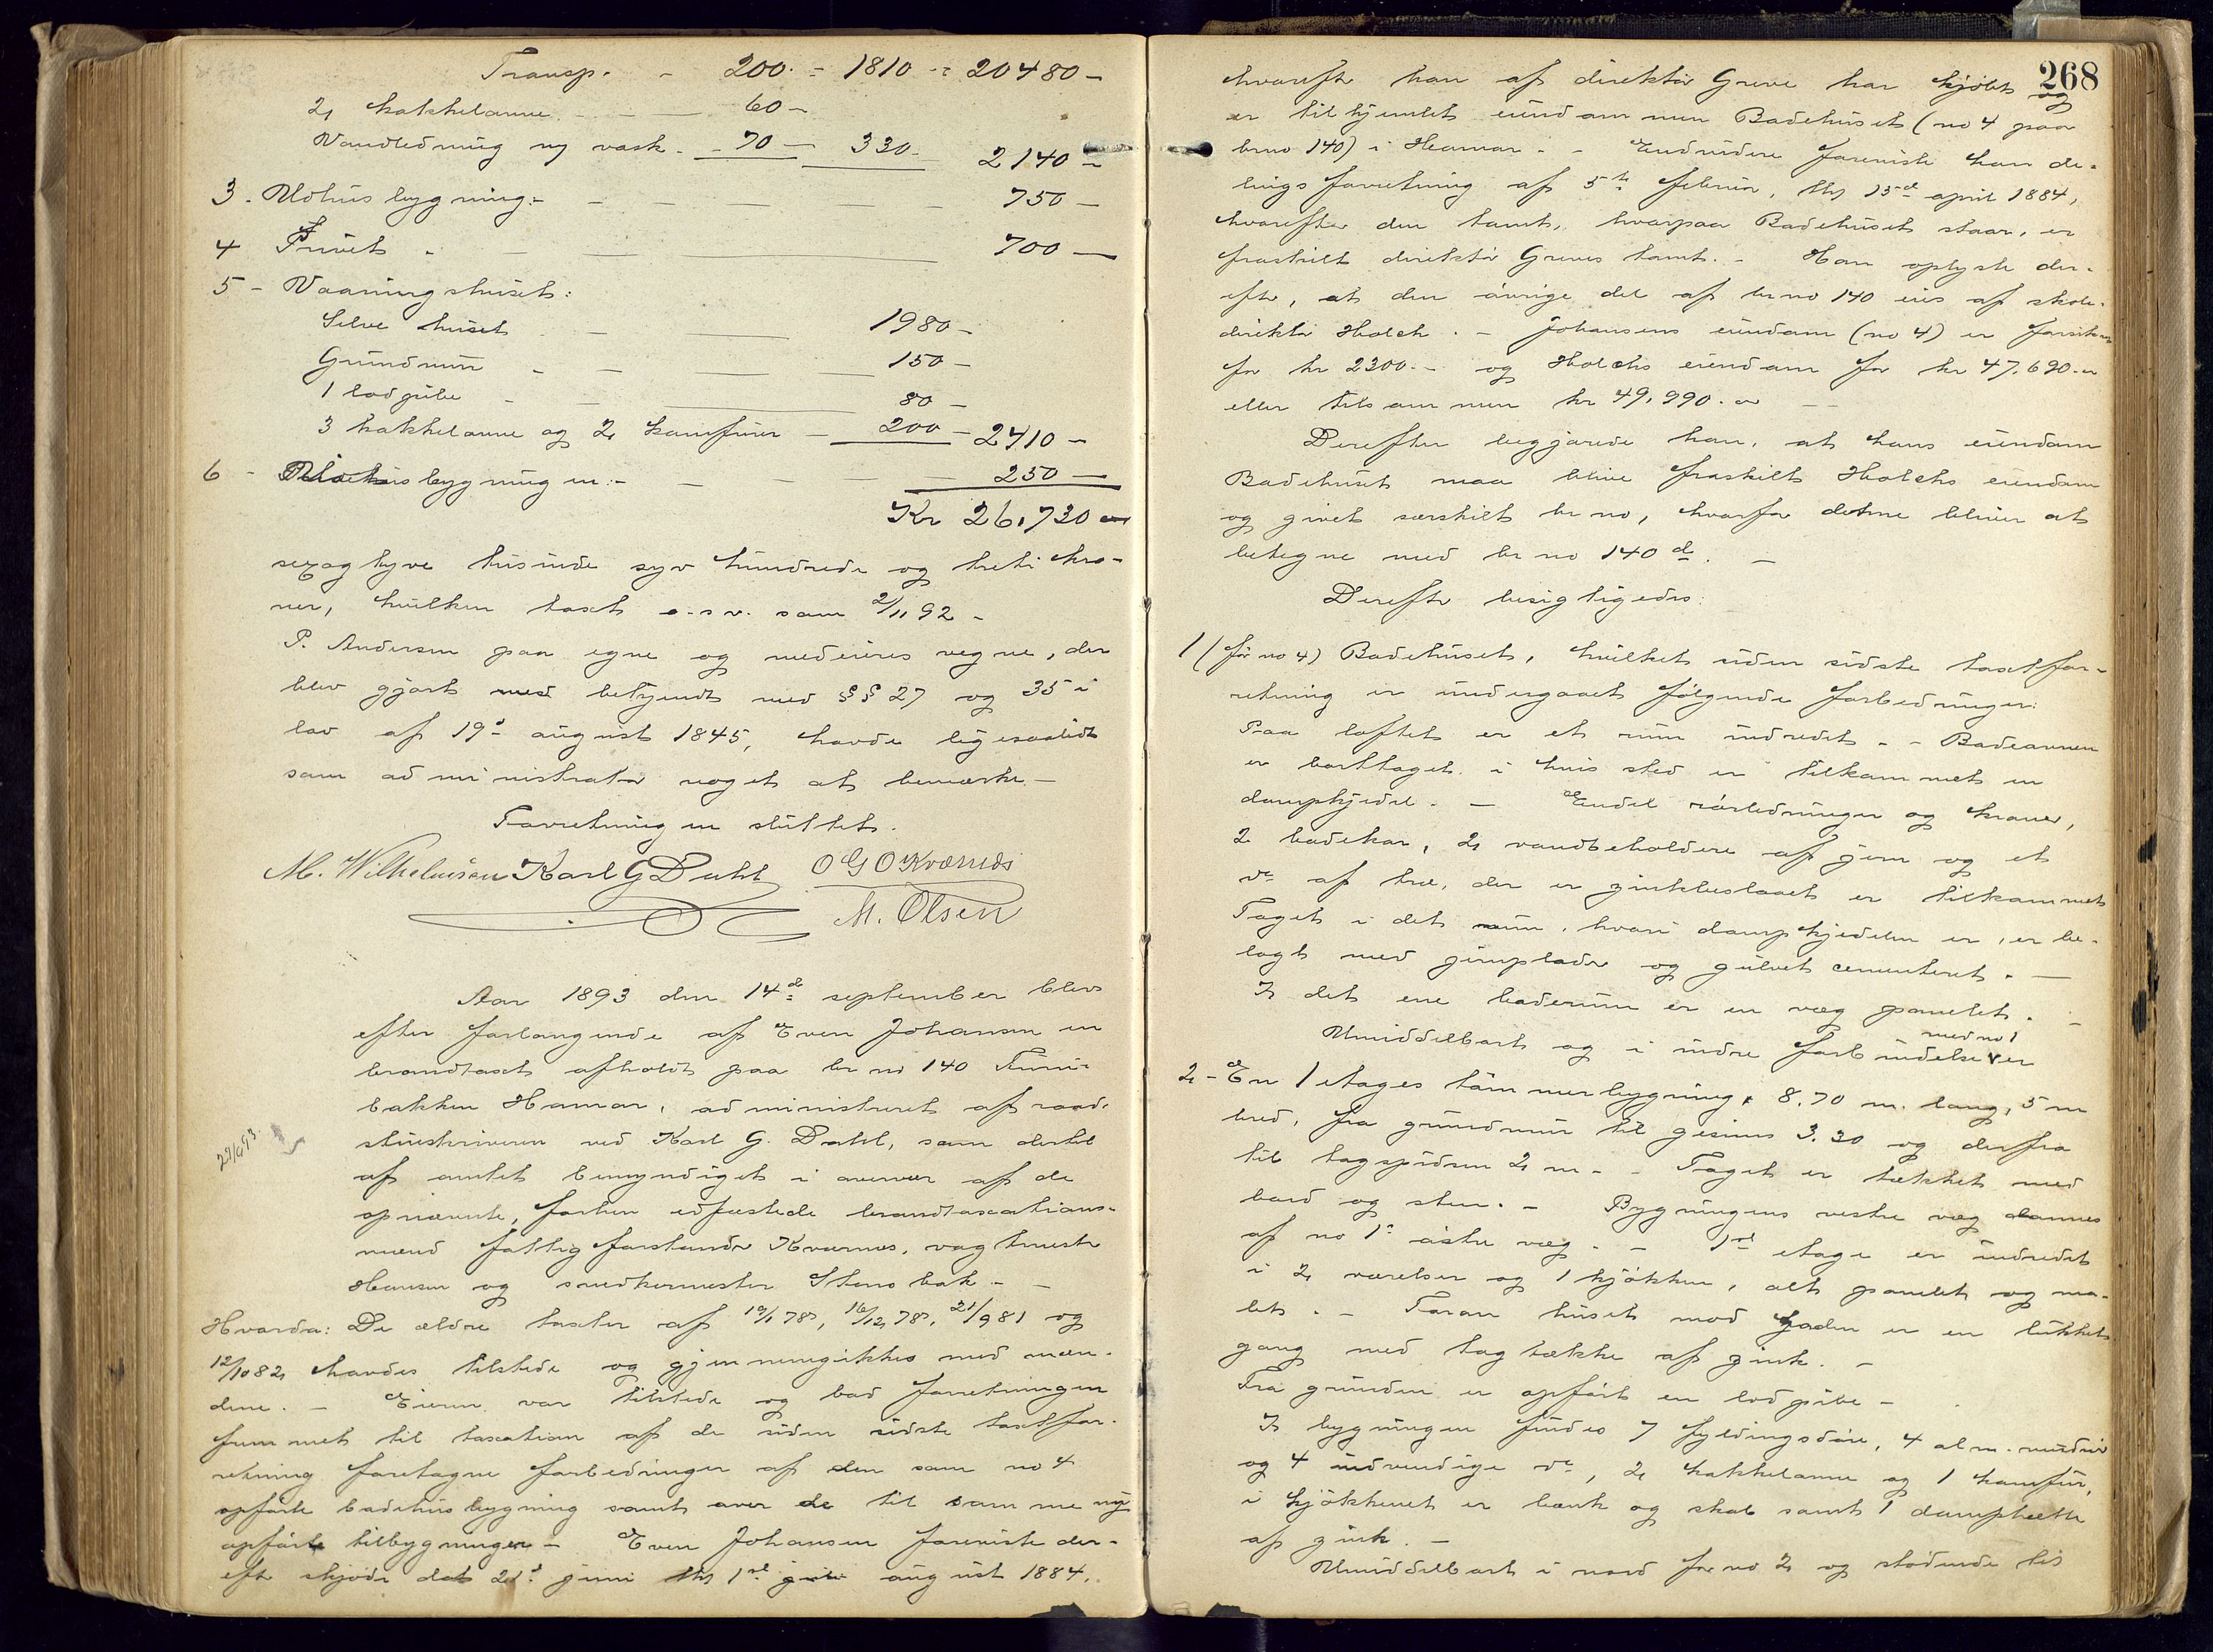 Transp. - 200 - 1810 - 20480 -
2 kakkelovne - - - 60 -
Vandledning og vask - 70 - 330 - 2140 -
3. Udhusbygning: - - - - - 750 -
4 Privet - - - - 700 -
5 - Vaaningshuset:
Selve huset - - 1980 -
Grundmur - - - 150 -
1 lodpibe - - 80 -
3 kakkelovne og 2 komfurer - 200 - 2410 -
6 - bygningen: - - - - 250 -
Kr 26,730
sexogtyve tusinde syv hundrede og treti kro-
ner, hvilken taxt o.s.v. som 2/11 92 -
P. Andersen paa egne og medeieres vegne, der
blev gjort med bekjendt med §§ 27 og 35 i
lov af 19d august 1845, havde ligesaalidt
som administrator noget at bemærke -
Forretningen sluttet.
M. Wilhelmsen Karl G Dahl O G O Kværnes
M. Olsen
Aar 1893 den 14de september blev
efter forlangende af Even Johansen en
brandtaxt afholdt paa br no 140 Furu-
bakken Hamar, administreret af raad-
stueskriveren ved Karl G. Dahl, som dertil
22/9 93.
af amtet bemyndiget i overvær af de
opnævnte, forhen edfæstede brandtaxations-
mænd fattigforstander Kværnes, vagtmester
Hansen og snedkermester Stensbak - -
Hvorda: De ældre taxter af 19/1 78, 16/12 78, 21/9 81 og
12/10 82 havdes tilstede og gjennemgikkes med mæn-
dene. - Eieren var tilstede og bad forretningen
fremmet til taxation af de siden sidste taxtfor-
retning foretagne forbedringer af den som no 4
opførte badehusbygning samt over de til samme ny
opførte tilbygninger - Even Johansen foreviste der-
efter skjøde dat 21d juni thl 1st august 1884,
268
hvorefter han af direktør Greve har kjøbt og
er tilskjødet eiendommen Badehuset (no 4 paa
br no 140) i Hamar - - Endvidere foreviste han de-
lingsforretning af 5te februar, thl 15d april 1884,
hvorefter den tomt, hvorpaa Badehuset staar, er
fraskilt direktør Greves tomt. - Han oplyste der-
efter, at den øvrige del af br no 140 eies af skole-
direktør Holch. - Johansens eiendom (no 4) er forsikret
for kr 2300 - og Holchs eiendom for kr 47,690
eller tilsammen kr 49,990 - -
Derefter begjærede han, at hans eiendom
Badehuset maa blive fraskilt Holchs eiendom
og givet særskilt br no, hvorfor denne bliver at
betegne med br no 140 d. -
Derefter besigtigedes:
1 (før no 4) Badehuset, hvilket siden sidste taxtfor-
retning er undergaaet følgende forbedringer:
Paa loftet er et rum indredet - - Badeovnen
er borttaget, i hvis sted er tilkommet en
dampkjedel. - Endel rørledninger og kraner,
2 badekar, 2 vandbeholdere af jern og et
do af træ, der er zinkbeslaaet er tilkommet
Taget i det rum, hvori dampkjedelen er, er be-
lagt med jernplader og gulvet cementeret. -
I det ene baderum er en væg panelet. -
Umiddelbart og i indre forbindelse med no 1 er
2 - En 1 etages tømmerbygning, 8.70 m. lang, 5 m
bred, fra grundmur til gesims 3.30 og derfra
til tagspidsen 2 m - - Taget er tækket med
bord og sten. - Bygningens vestre væg dannes
af no 1s østre væg. - 1st etage er indredet
i 2 værelser og 1 kjøkken, alt panelet og ma-
let. - Foran huset mod gaden er en lukket
gang med tagtække af zink. -
Fra grunden er opført en lodpibe -
I bygningen findes 7 fyldingsdøre, 4 alm. vinduer
og 4 indvendige do, 2 kakkelovne og 1 komfur,
i kjøkkenet er bænk og skab samt 1 damphætte
af zink. -
Umiddelbart i nord for no 2 og stødende til